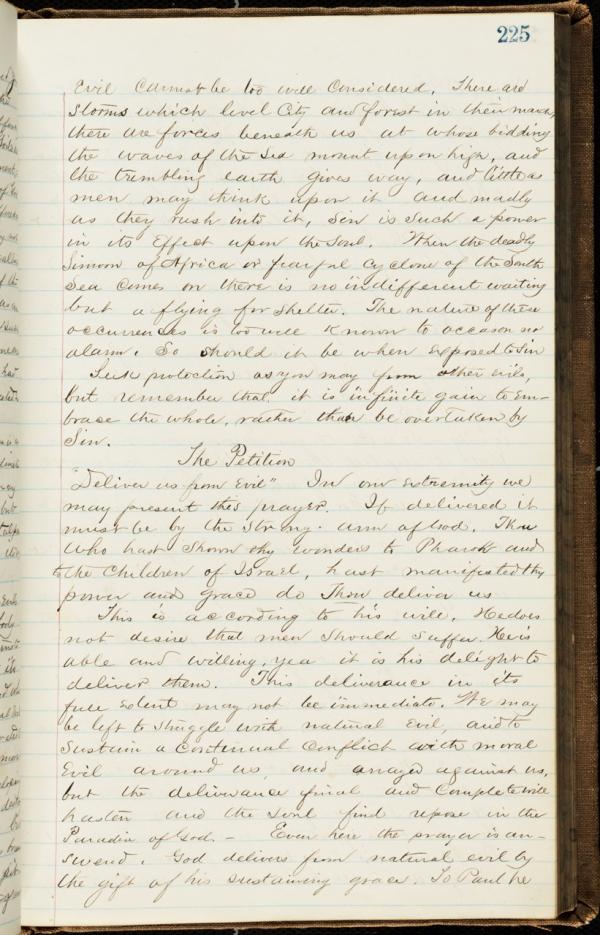 225
Evil cannot be too well Considered. There are
Storms which level City and forest in their march,
there are forces beneath us at whose bidding
the waves of the Sea mount up on high, and
the trembling earth gives way, and little as
men may think upon it and madly
as they rush into it, Sin is Such a power
in its Effect upon the Soul. When the deadly
Simoon of Africa or fearful cyclone of the South
Sea Comes on there is no indifferent waiting
but a flying for Shelter. The nature of these
occurrences is too well Known to occason no
alarm. So should it be when exposed to Sin
Seek protection as you may from other evils,
but remember that it is infinite gain to Em-
brace the whole, rather than be overtaken by
Sin.
The Petition
"Deliver us from Evil" In our extremity we
may present this prayer. If delivered it
must be by the Strong arm of God. Thou
who hast Shown thy wonders to Pharoh and
to the Children of Israel, hast manifested thy
power and grace do Thou deliver us
This is according to his will. He does
not desire that men Should Suffer. He is
able and willing, yea it is his delight to
deliver them. This deliverance in its
full Extent may not be immediate. We may
be left to Struggle with natural Evil, and to
Sustain a Continual Conflict with moral
Evil around us, and arrayed against us,
but the deliverance final and Complete will
hasten and the Soul find repose in the
Paradise of God. - Even here the prayer is an-
swered. God delivers from natural evil by
the gift of his sustaining grace. To Paul he